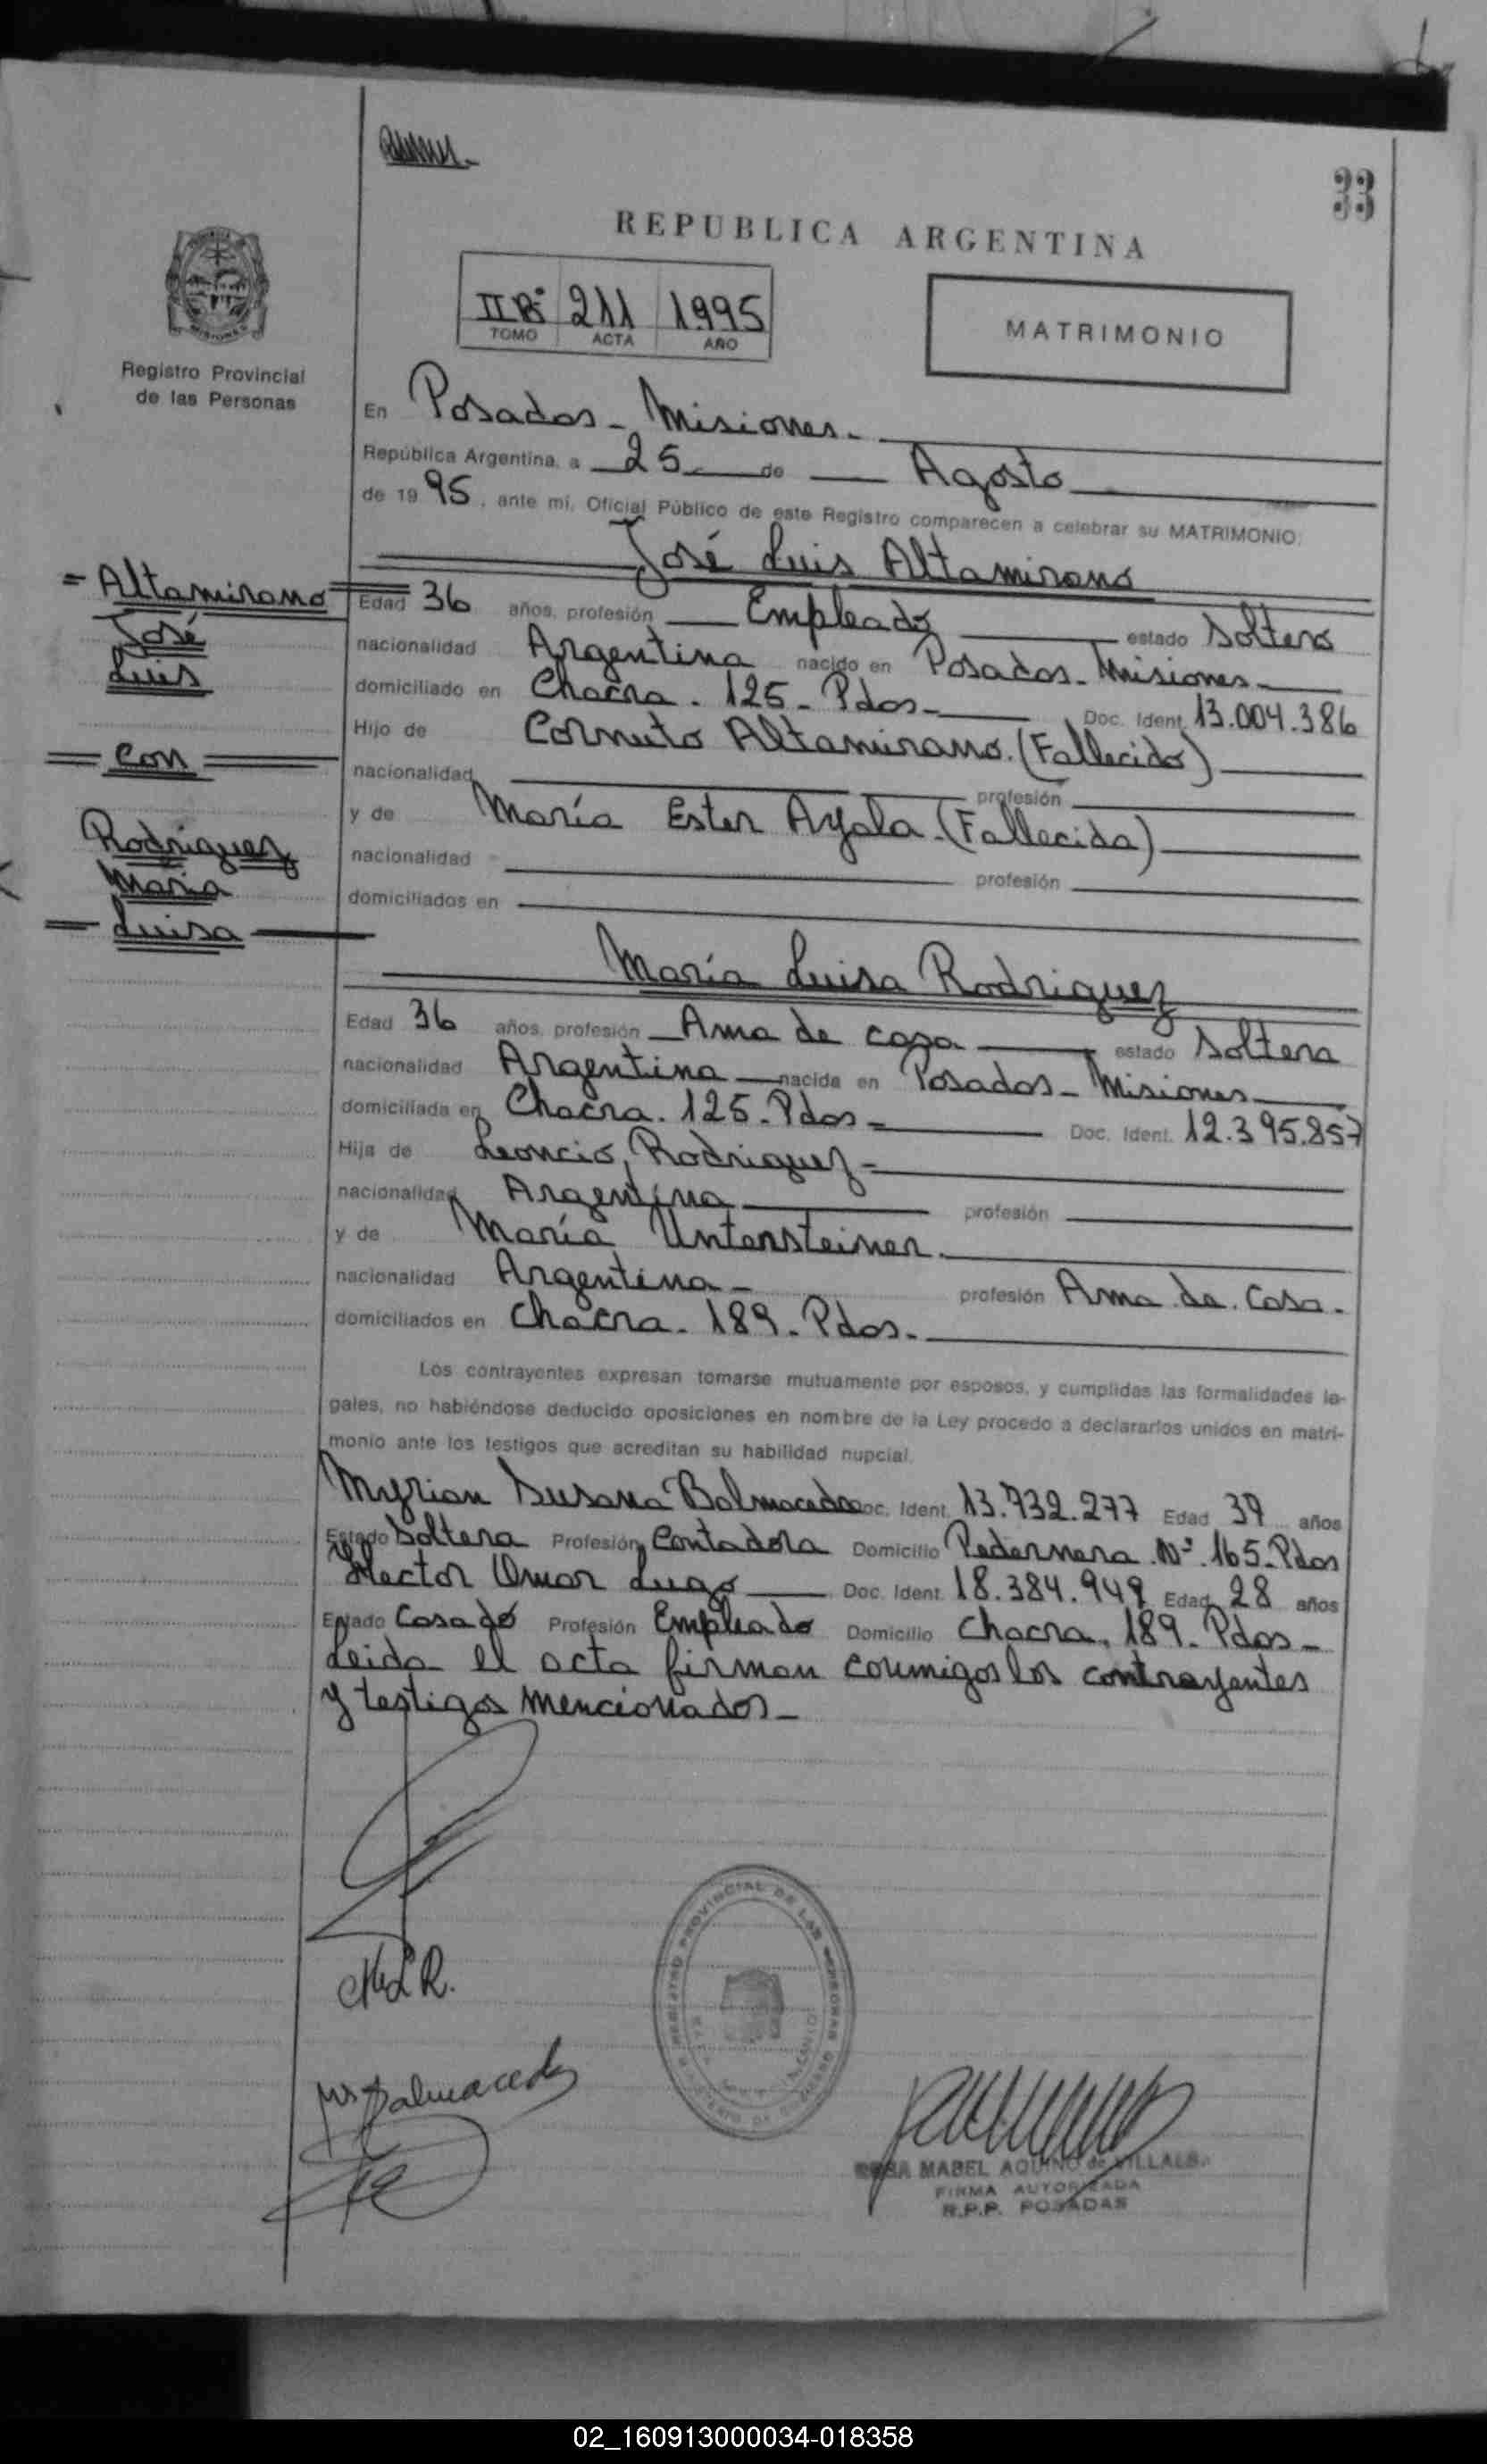 33
REPUBLICA ARGENTINA
IIBº 211 1995
TOMO ACTA AÑO
MATRIMONIO
Registro Provincial
de las Personas
En Posadas - Misiones -
República Argentina, a 25 de Agosto
de 19 95, ante mí, Oficial Público de este Registro comparecen a celebrar su MATRIMONIO:
José Luis Altamirano
= Altamirano
José
Luis
= Con =
Rodriguez
Maria
- Luisa -
Edad 36 años, profesión Empleado estado Soltero
nacionalidad Argentina nacido en Posadas - Misiones -
domiciliado en Chacra. 125 - Pdas - Doc. Ident. 13.004.386
Hijo de Altamirano. (Fallecido)
nacionalidad profesión
y de María Ester Ayala. (Fallecida)
nacionalidad profesión
domiciliados en
María Luisa Rodriguez
Edad 36 años, profesión Ama de casa estado Soltera
nacionalidad Argentina nacida en Posadas - Misiones -
domiciliada en Chacra. 125 - Pdas - Doc. Ident. 12.395.857
Hija de Leoncio Rodriguez -
nacionalidad Argentina profesión
y de María Untersteiner.
nacionalidad Argentina - profesión Ama de Casa.
domiciliados en Chacra - 189 - Pdas -
Los contrayentes expresan tomarse mutuamente por esposos, y cumplidas las formalidades le-
gales, no habiéndose deducido oposiciones en nombre de la Ley procedo a declararlos unidos en matri-
monio ante los testigos que acreditan su habilidad nupcial.
Myrian Susana Balmaceda Doc. Ident. 13.732.277 Edad 37 años
Estado Soltera Profesión Contadora Domicilio Pedernera Nº 165 - Pdas
Hector Omar Lugo Doc. Ident. 18.384.949 Edad 28 años
Estado Casado Profesión Empleado Domicilio Chacra. 189 - Pdas -
Leida el acta firman conmigo los contrayentes
y testigos mencionados -
M L R.
Balmaceda
REGISTRO PROVINCIAL DE LAS PERSONAS
MABEL AQUINO de VILLALB
FIRMA AUTORIZADA
R.P.P. POSADAS
02_160913000034-018358